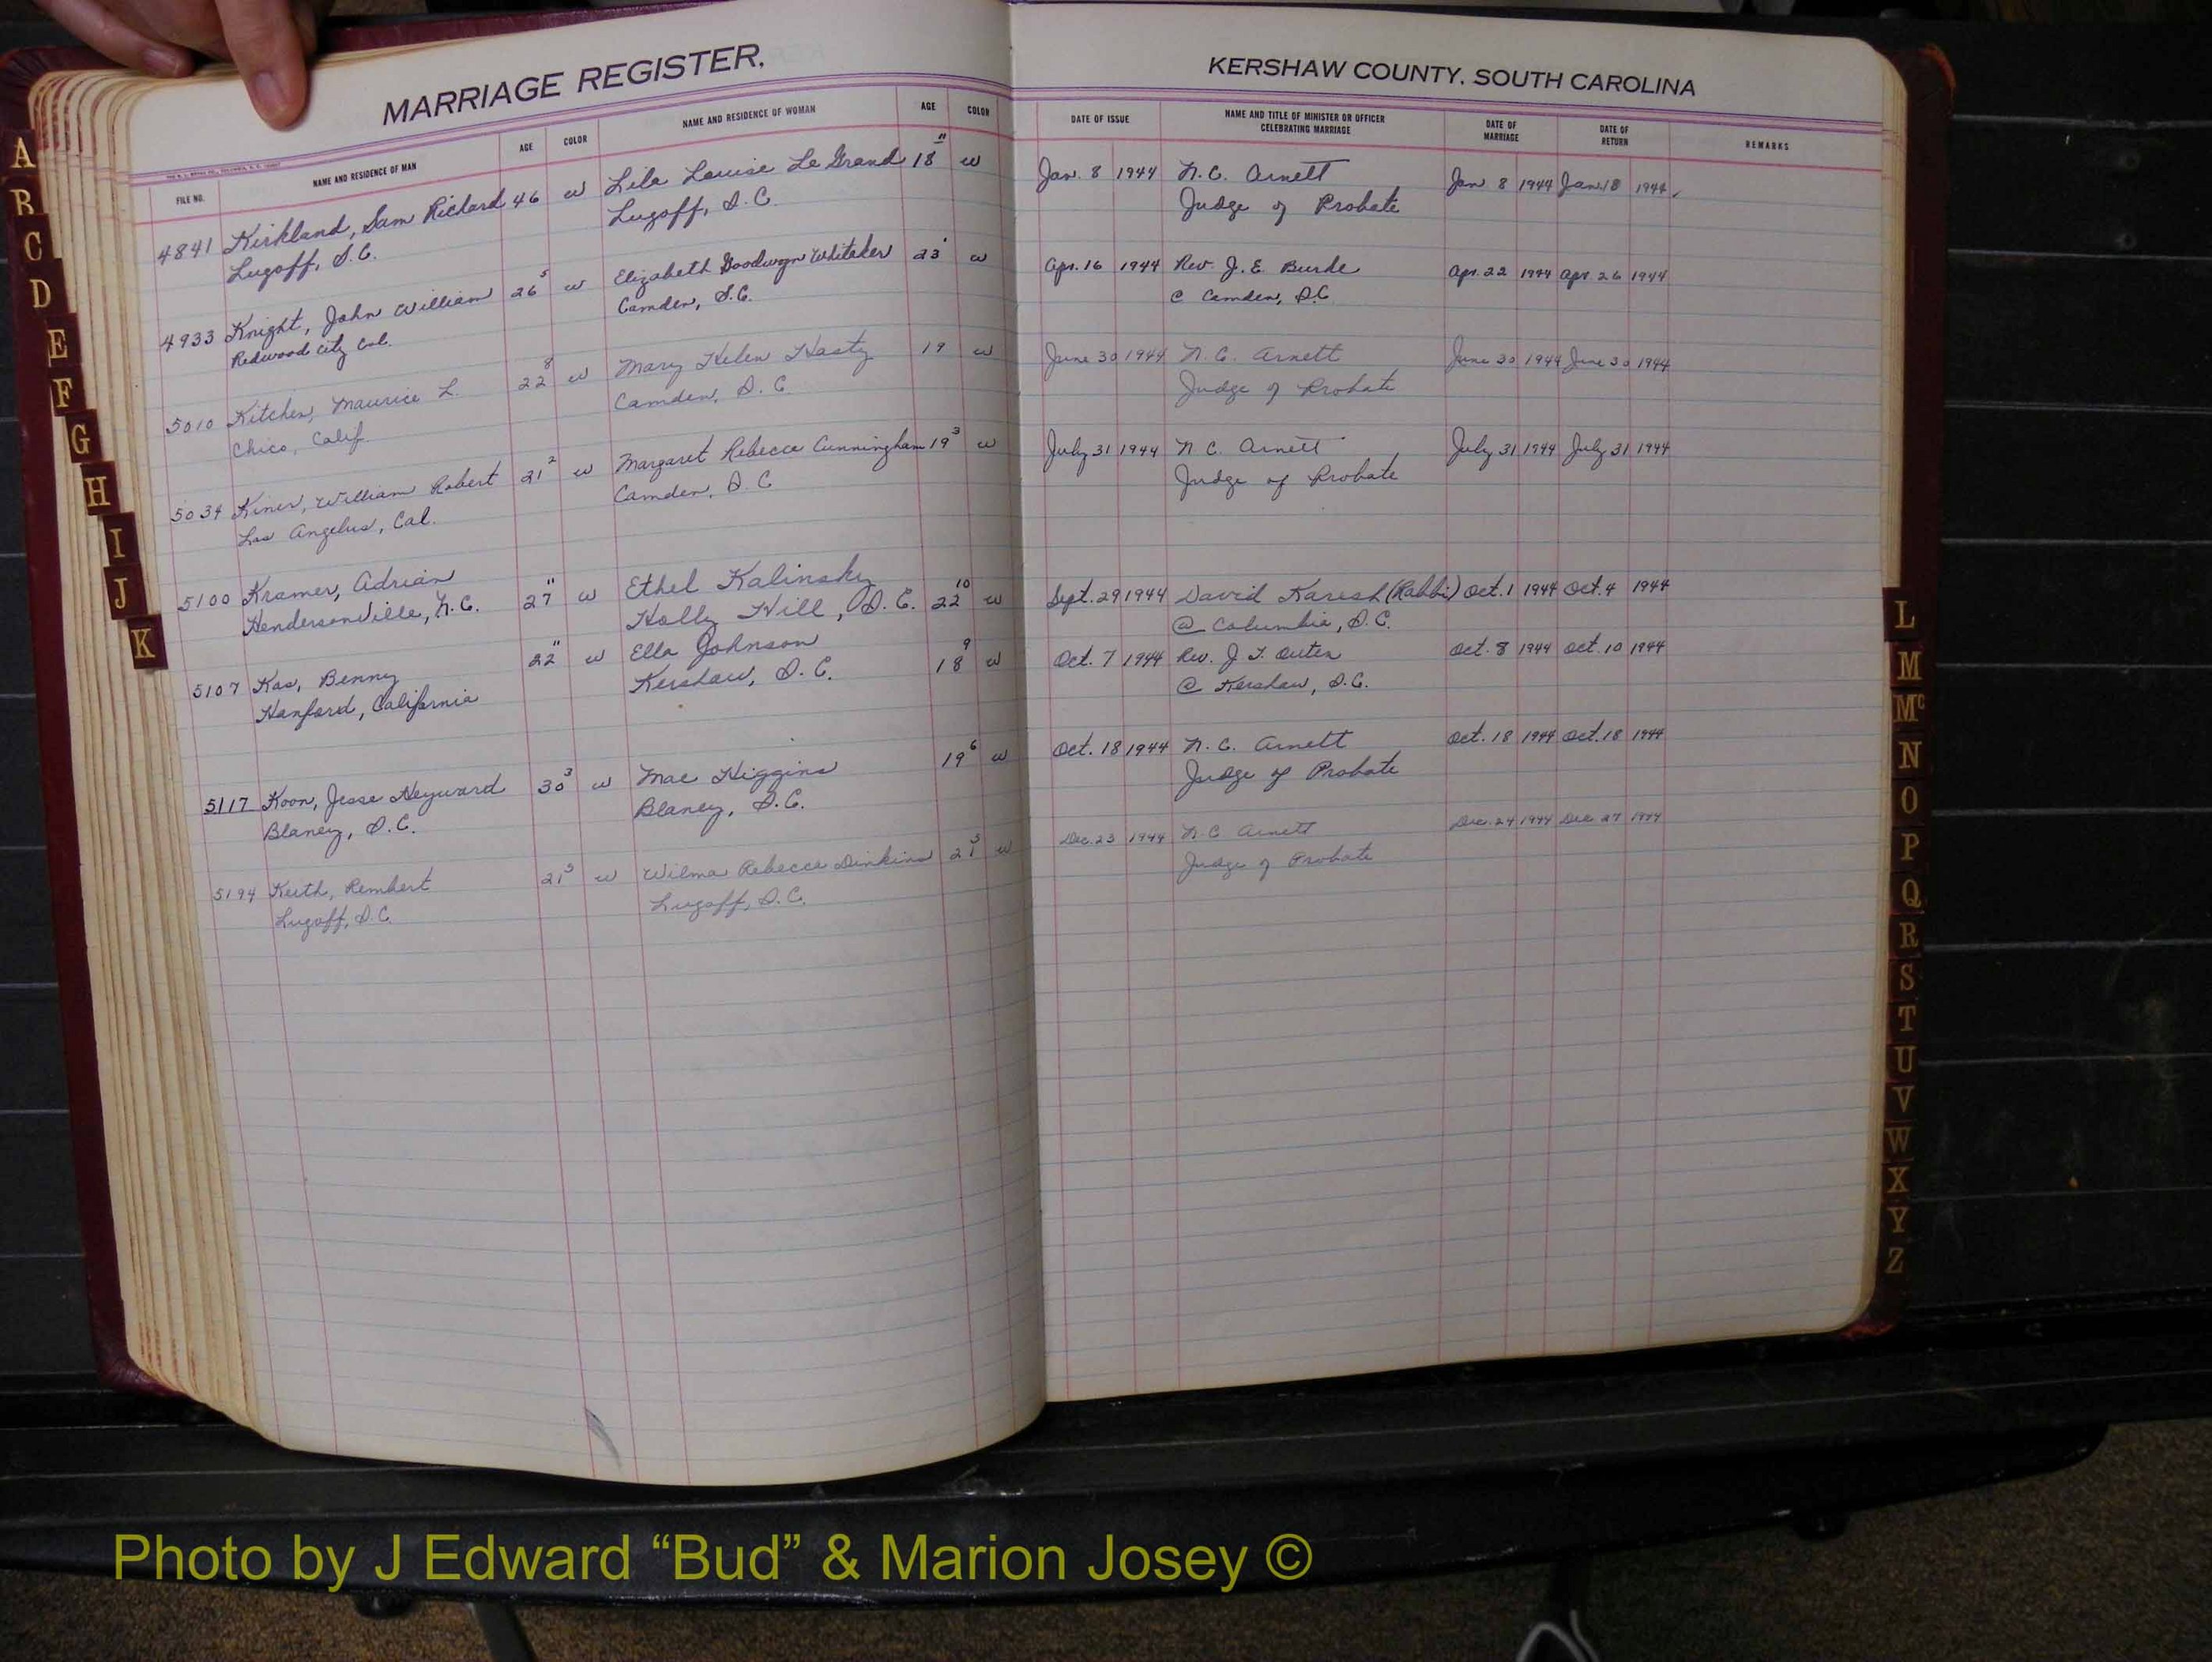 MARRIAGE REGISTER.
KERSHAW COUNTY, SOUTH CAROLINA
FILE NO. NAME AND RESIDENCE OF MAN AGE COLOR NAME AND RESIDENCE OF WOMAN AGE COLOR DATE OF ISSUE NAME AND TITLE OF MINISTER OR OFFICER CELEBRATING MARRIAGE DATE OF MARRIAGE DATE OF RETURN REMARKS
4841 Kirkland, Sam Richard 46 w Lila Louise Le Grand 18 11 w Jan. 8 1944 N.C. Arnett Jan 8 1944 Jan. 18 1944
Lugoff, S.C. Lugoff, S.C. Judge of Probate
4933 Knight, John William 26 5 w Elizabeth Goodwyn Whitaker 23 w Apr. 16 1944 Rev. J. E. Apr. 22 1944 Apr. 26 1944
Redwood City Cal. Camden, S.C. @ Camden, S.C
5010 Kitchen, Maurice L. 22 8 w Mary Helen Hasty 19 w June 30 1944 N.C. Arnett June 30 1944 June 30 1944
Chico, Calif Camden, S.C. Judge of Probate
5034 Kiner, William Robert 21 2 w Margaret Rebecca Cunningham 19 3 w July 31 1944 N C. Arnett July 31 1944 July 31 1944
Los Angelus, Cal. Camden, S.C Judge of Probate
5100 Kramer, Adrian 27 11 w Ethel Kalinsky 22 10 w Sept. 29 1944 David Karesh (Rabbi) Oct. 1 1944 Oct. 4 1944
Hendersonville, N.C. Holly Hill, S.C. @ Columbia, S.C.
5107 Kas, Benny 22 11 w Ella Johnson 18 9 w Oct. 7 1944 Rev. J. T. Outen Oct. 8 1944 Oct. 10 1944
Hanford, California Kershaw, S.C. @ Kershaw, S.C.
5117 Koon, Jesse Heyward 30 3 w Mae Higgins 19 6 w Oct. 18 1944 N.C. Arnett Oct. 18 1944 Oct. 18 1944
Blaney, S.C. Blaney, S.C. Judge of Probate
5194 Keith, Rembert 21 w Wilma Rebecca Dinkins 21 w Dec. 23 1944 N.C Arnett Dec. 24 1944 Dec 27 1944
Lugoff, S.C. Lugoff, S.C. Judge of Probate
A
B
C
D
E
F
G
H
I
J
K
L
M
Mc
N
O
P
Q
R
S
T
U
V
W
X
Y
Z
Photo by J Edward “Bud” & Marion Josey ©